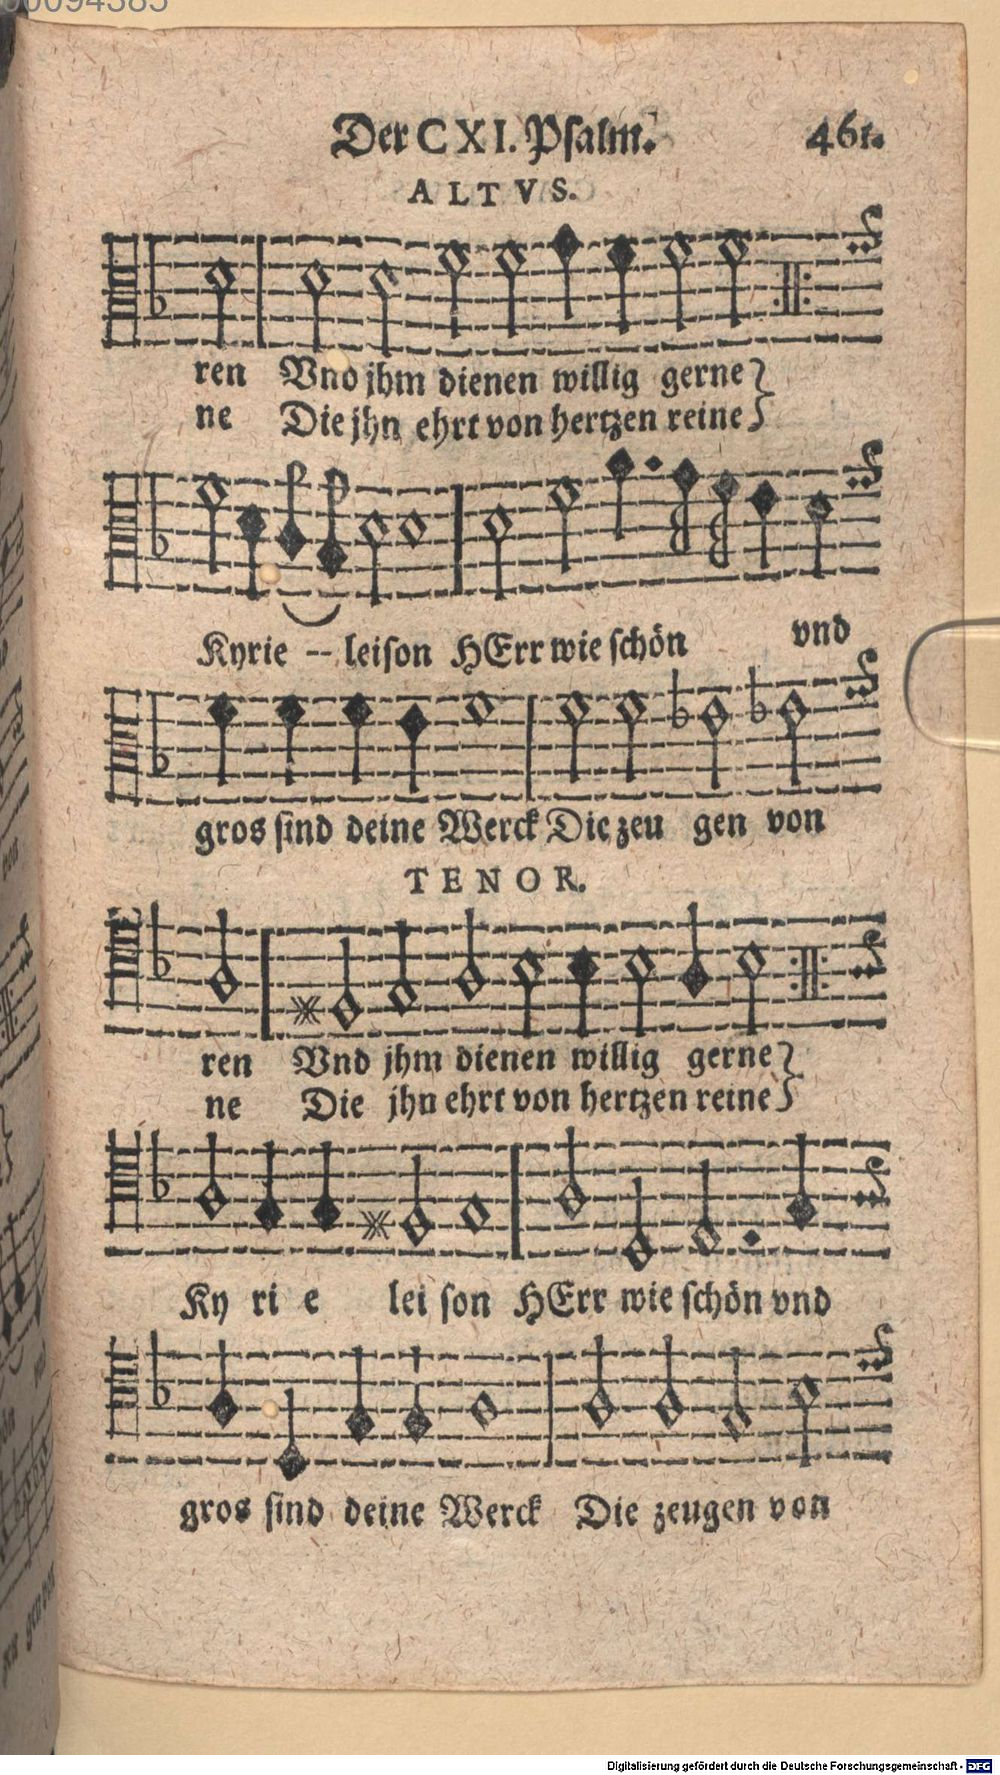 00094385
Der CXI. Psalm. 461.
ALTVS.
ren Vnd jhm dienen willig gerne
ne Die jhn ehrt von hertzen reine
Kyrie -- leiſon HErr wie ſchön vnd
gros ſind deine Werck Die zeu gen von
TENOR.
ren Vnd jhm dienen willig gerne
ne Die jhn ehrt von hertzen reine
Ky ri e lei ſon HErr wie ſchön vnd
gros ſind deine Werck Die zeugen von
Digitalisierung gefördert durch die Deutsche Forschungsgemeinschaft - DFG